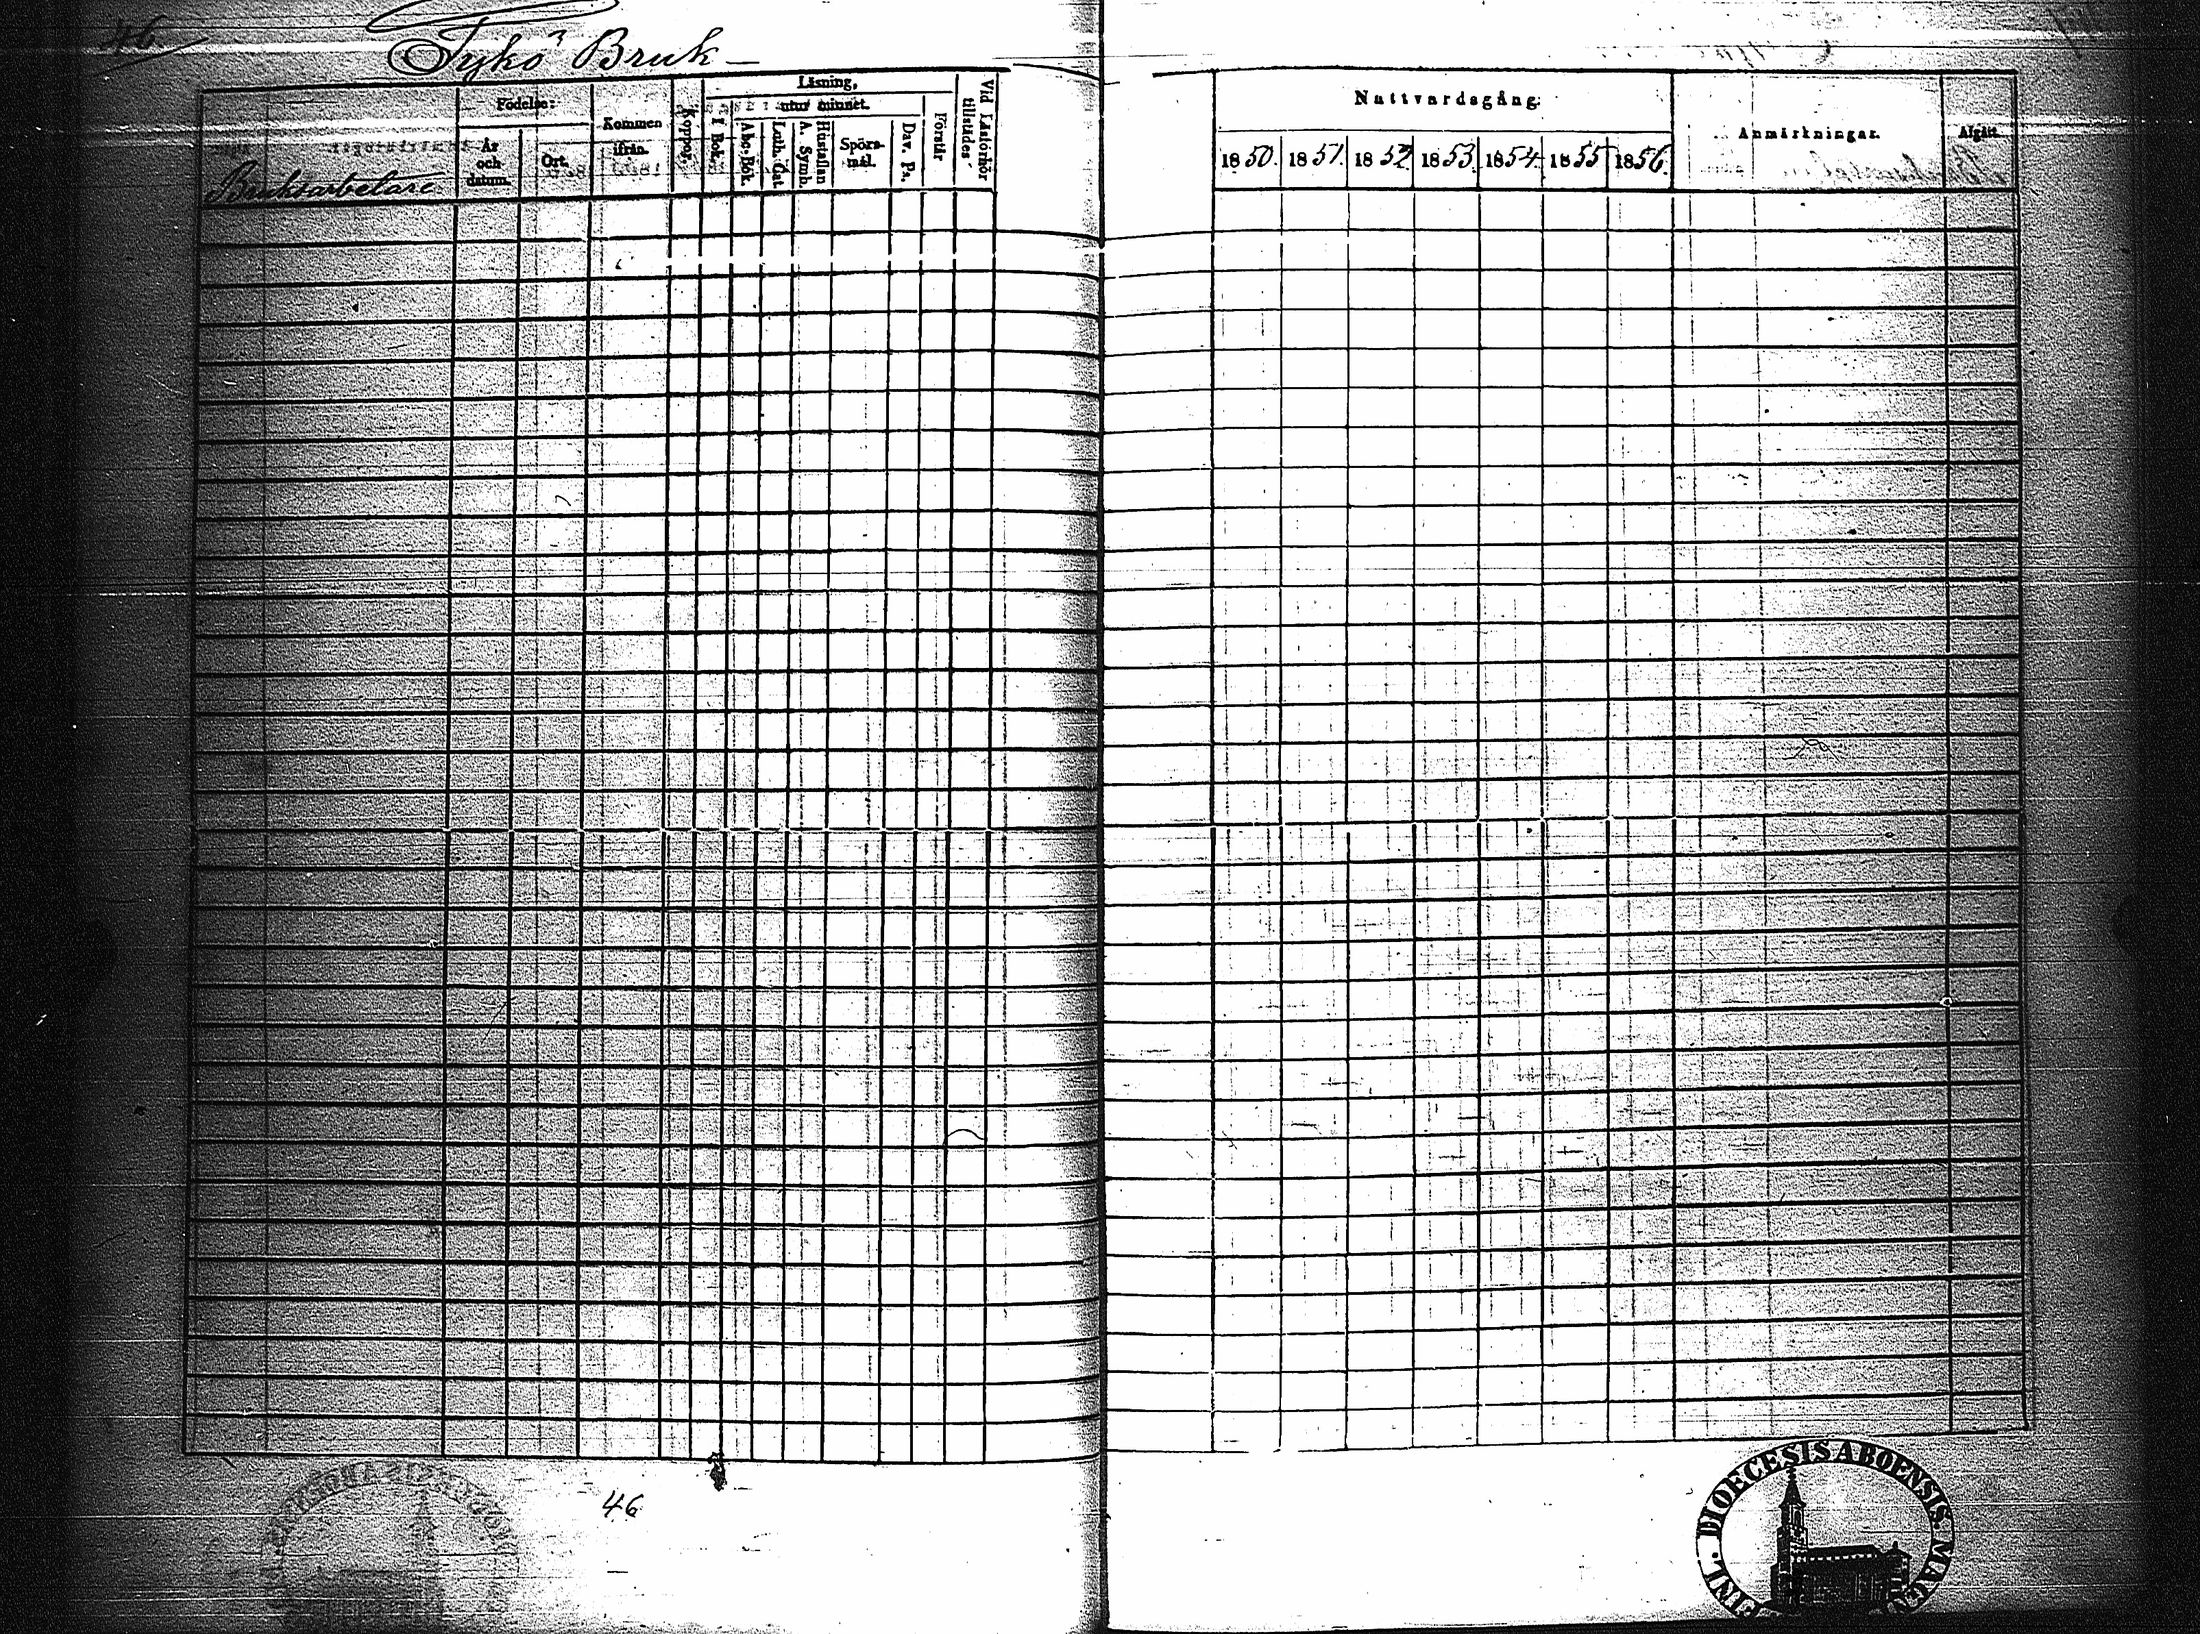 46.
Tykö Bruk
Läsning,
Födelse:
utur minnet.
Kommen ifrån.
Koppor.
I Bok.
Abc-Bok.
Luth. Cat.
Hustaflan
A. Symb.
Spörs-
mål.
Dav. Ps.
Förstår
Vid Läsförhör
tillstädes
År
och
datum.
Ort.
Bruksarbetare
Nattvardsgång.
Anmärkningar.
Afgått.
1850. 1851. 1852. 1853. 1854. 1855 1856.
46
FINL. DIOECESIS ABOENSIS. MAGN